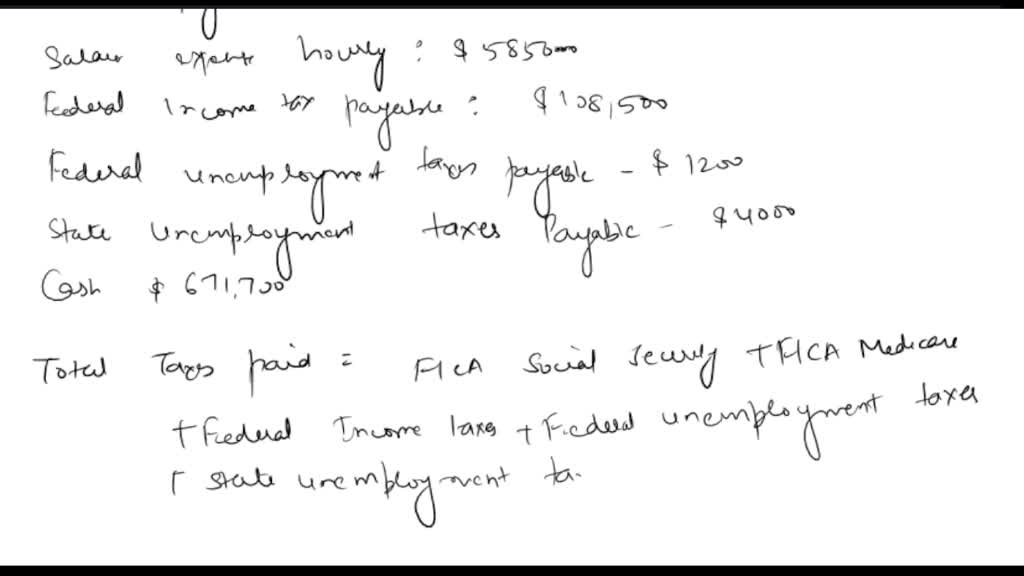 Salary expense hourly : $ 585000
Federal Income tax payable : $ 108,500
Federal unemployment taxes payable - $ 1200
State Unemployment taxes Payable - $ 4000
Cash $ 671,700
Total Taxes paid = FICA Social Security + FICA Medicare
+ Federal Income taxes + Federal unemployment taxes
+ State unemployment ta